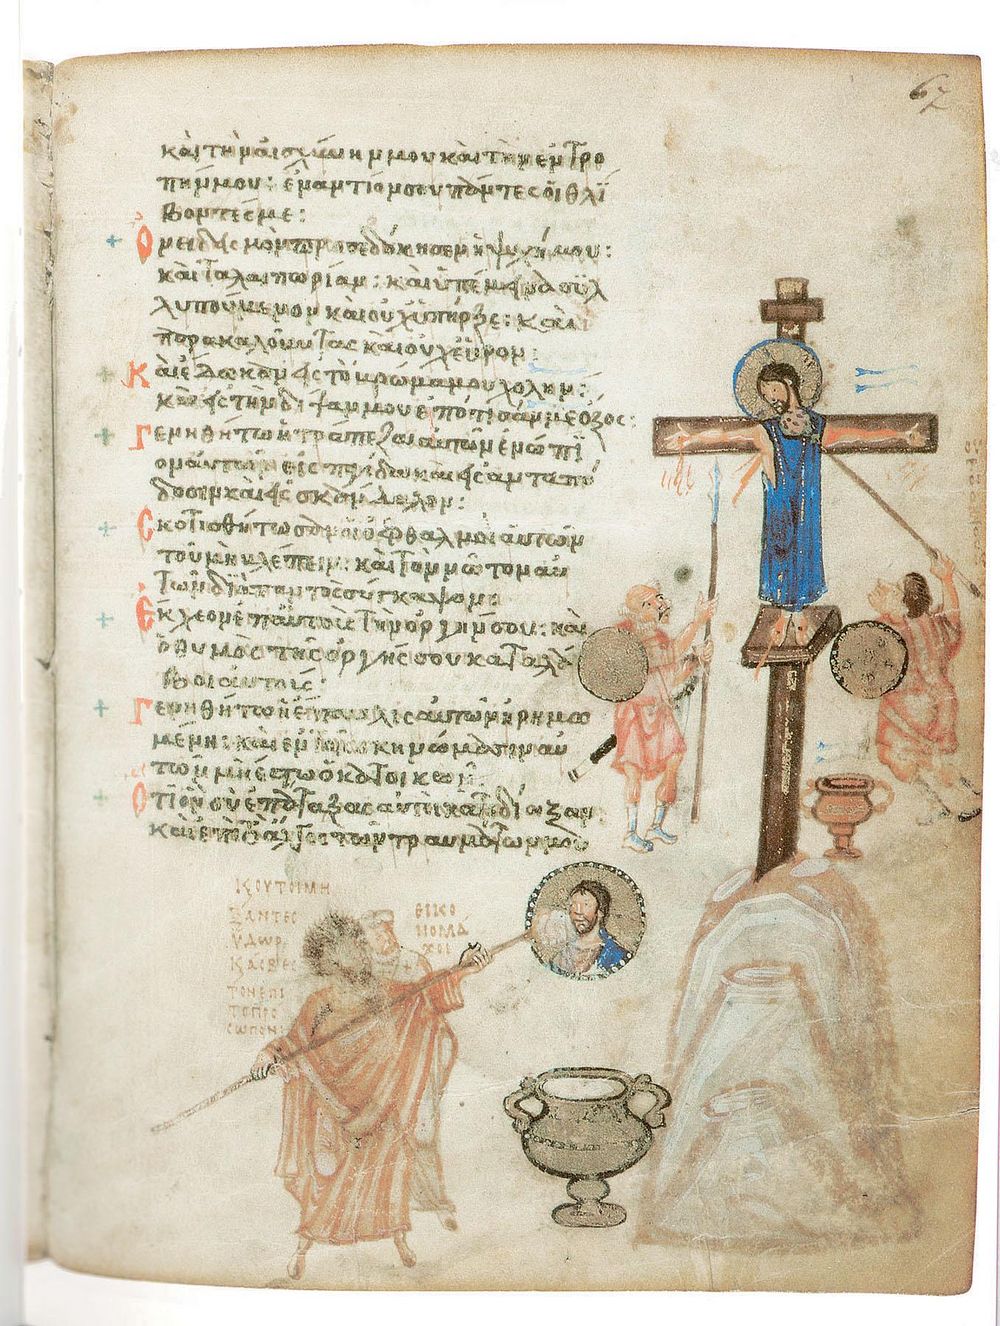 67
καὶ τὴν αἰσχύνην μου καὶ τὴν ἐντρο
πήν μου: ἐναντίον σου πάντες οἱ θλί
βοντές με:
Ὀνειδισμὸν προσεδόκησεν ἡ ψυχή μου:
καὶ ταλαιπωρίαν: καὶ ὑπέμεινα συλ
λυπούμενον καὶ οὐχ ὑπῆρξε: καὶ
παρακαλοῦντας καὶ οὐχ εὗρον:
Καὶ ἔδωκαν εἰς τὸ βρῶμα μου χολήν:
καὶ εἰς τὴν δίψαν μου ἐπότισάν με ὄξος:
Γενηθήτω ἡ τράπεζα αὐτῶν ἐνώπι
ον αὐτῶν εἰς παγίδα καὶ εἰς ἀνταπό
δοσιν καὶ εἰς σκάνδαλον:
Σκοτισθήτωσαν οἱ ὀφθαλμοὶ αὐτῶν
τοῦ μὴ βλέπειν: καὶ τὸν νῶτον αὐ
τῶν διὰ παντὸς σύγκαψον
Ἔκχεον ἐπ αὐτοὺς τὴν ὀργήν σου: καὶ
ὁ θυμὸς τῆς ὀργῆς σου καταλά
βοι αὐτούς:
Γενηθήτω ἡ ἔπαυλις αὐτῶν ἠρημω
μένη: καὶ ἐν τοῖς σκηνώμασιν αὐ
τῶν μὴ ἔστω ὁ κατοικῶν:
Ὅτι ὃν σὺ ἐπάταξας αὐτοὶ κατεδίωξαν:
καὶ ἐπὶ τὸ ἄλγος τῶν τραυμάτων μου
Κ ΟΥΤΟΙ ΜΗ
ΞΑΝΤΕС
ΥΔΩΡ
ΤΟΝ ΕΠΙ
ΤΟ ΠΡΟ
СΩΠΟΝ
ΕΙΚΟ
ΝΟΜΑ
ΧΟΙ